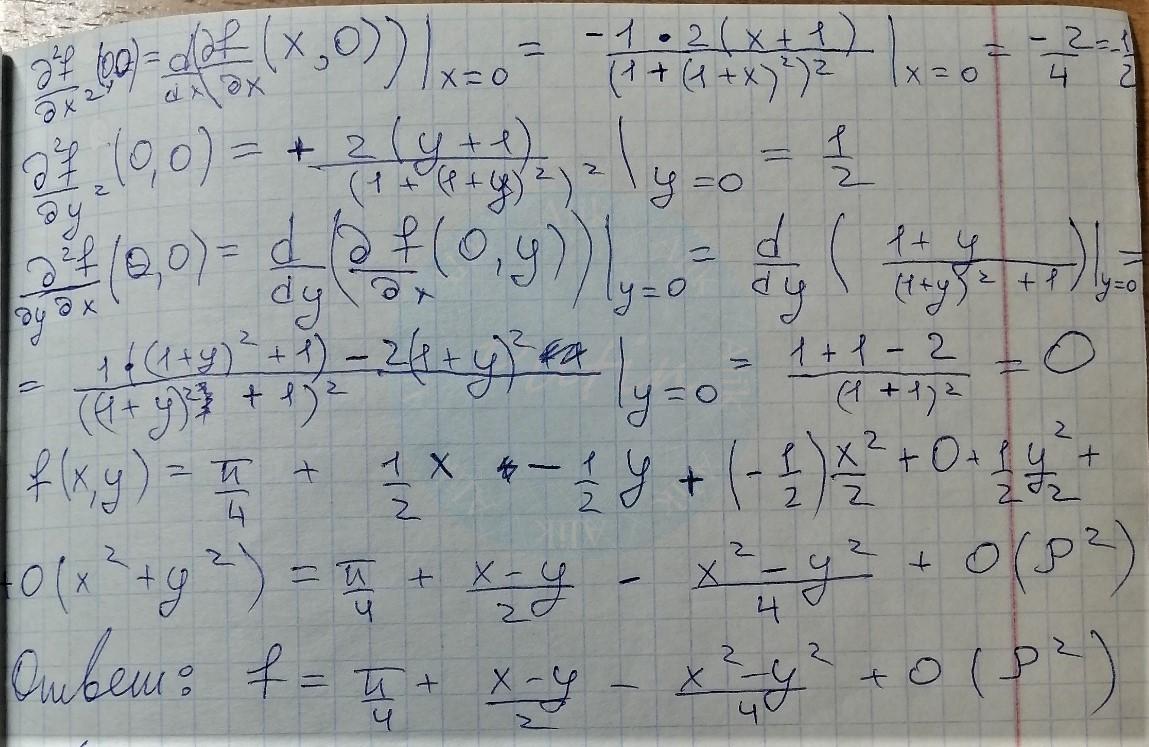 ∂²f/∂x² (0,0) = d/dx (∂f/∂x (x,0))|x=0 = -1·2(x+1)/(1+(1+x)²)² |x=0 = -2/4 = -1/2
∂²f/∂y² (0,0) = + 2(y+1)/(1+(1+y)²)² |y=0 = 1/2
∂²f/∂y∂x (0,0) = d/dy (∂f/∂x (0,y))|y=0 = d/dy ( 1+y/(1+y)²+1 )|y=0 =
= 1·((1+y)²+1) - 2(1+y)²/((1+y)²+1)² |y=0 = 1+1-2/(1+1)² = 0
f(x,y) = π/4 + 1/2 x - 1/2 y + (-1/2) x²/2 + 0 + 1/2 y²/2 +
+o(x²+y²) = π/4 + x-y/2 - x²-y²/4 + o(ρ²)
Ответ: f = π/4 + x-y/2 - x²-y²/4 + o(ρ²)